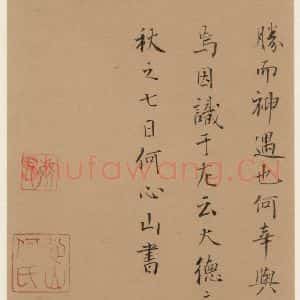 勝而神遇也何幸與
焉因識于左云大德
秋之七日何心山書
hufawang.CN